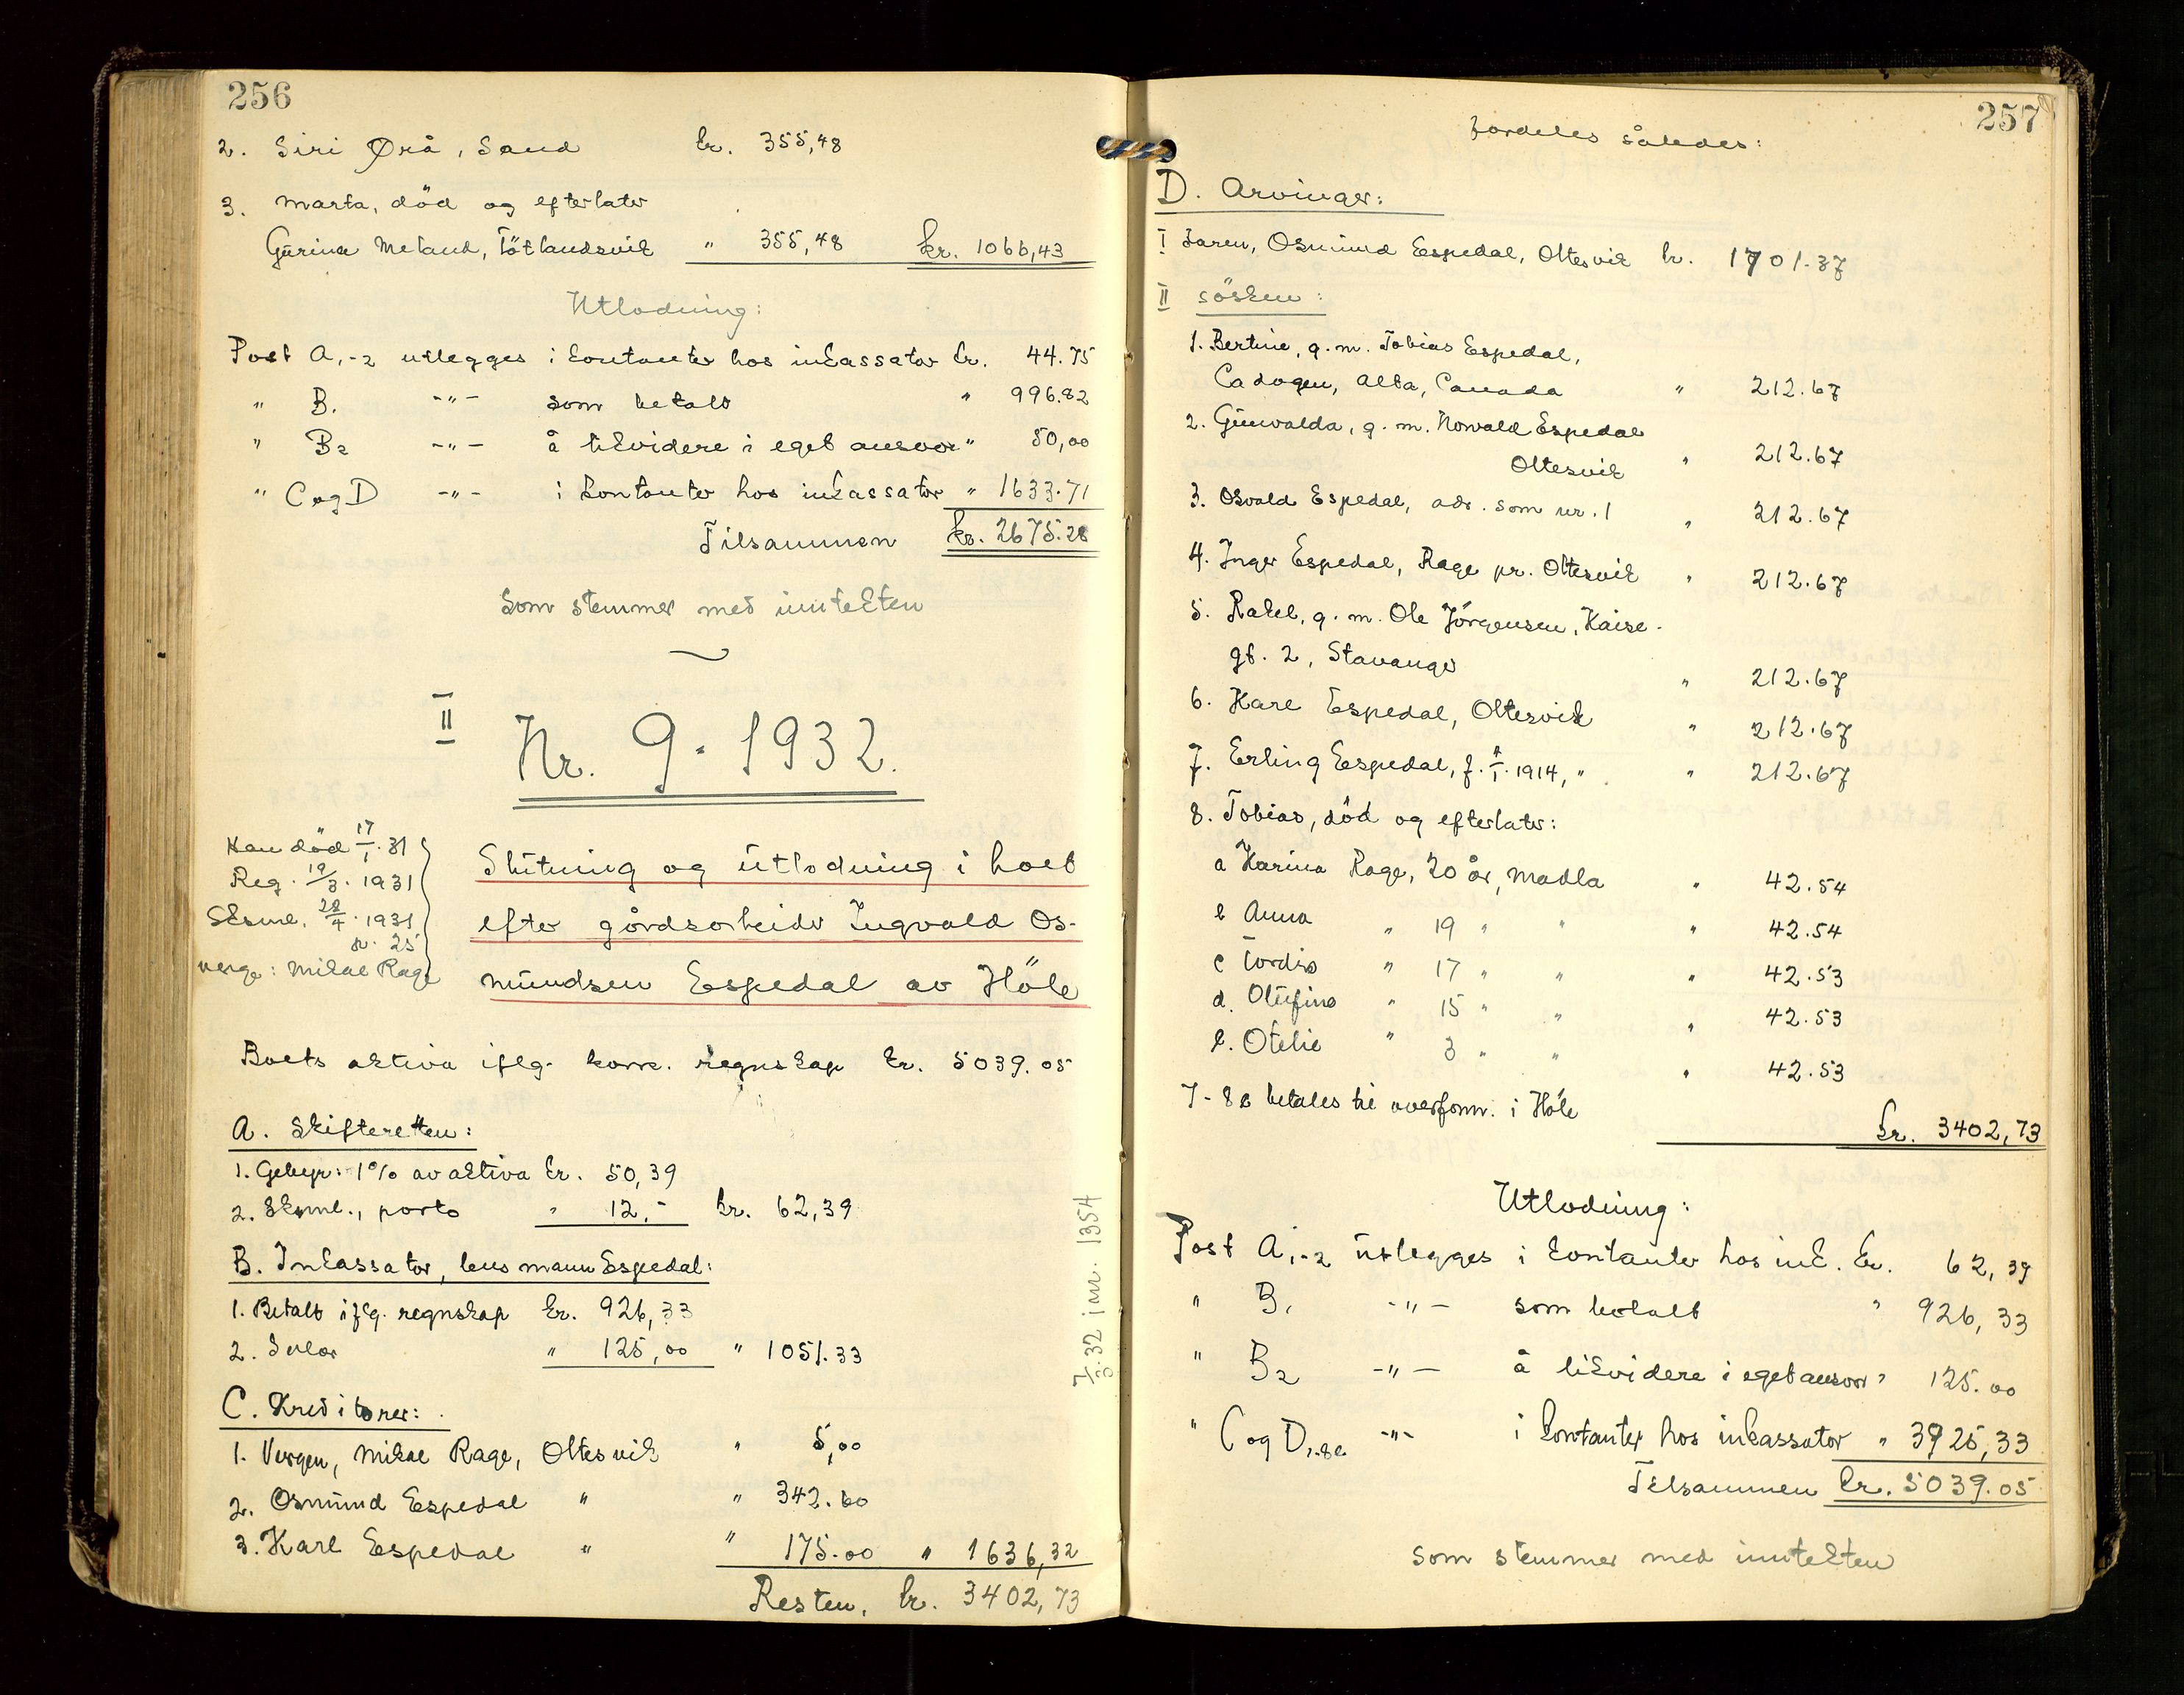 256
2. Siri Ørå, Sand kr. 355,48
3. Marta, död og efterlater
Gurina Meland, Tötlandsvik " 355,48 kr. 1066,43
Utlodning:
Post A,-2 utlegges i kontanter hos inkassator kr. 44.75
" B. -"- som betalt " 996.82
" B2 -"- å likvidere i eget ansvar " 50,00
" C og D -"- i kontanter hos inkassator " 1633.71
Tilsammen kr. 2675.28
Som stemmer med inntekten
II
Nr. 9. 1932.
Han död 17/1.31
Reg. 19/3. 1931
Sksml. 28/4. 1931
kr. 25
verge: Mikal Rage
Slutning og utlodning i boet
efter gårdsarbeider Ingvald Os-
mundsen Espedal av Höle
Boets aktiva iflg. korr. regnskap kr. 5039.05
A. Skifteretten:
1. Gebyr: 1% av aktiva kr. 50,39
2. Sksml., porto " 12,- kr. 62,39
B. Inkassator, lensmann Espedal:
1. Betalt iflg. regnskap kr. 926,33
2. Salær " 125,00 " 1051.33
C. Kreditorer:
1. Vergen, Mikal Rage, Oltesvik " 5,00
2. Osmund Espedal " " 342.60
3. Karl Espedal " " 175.00 " 1636,32
Resten, kr. 3402,73
7/3.32 inr. 1354
257
Fordeles således:
D. Arvinger:
I Faren, Osmund Espedal, Oltesvik kr. 1701.37
II Sösken:
1. Bertine, g.m. Tobias Espedal,
Cadogen, Alta, Canada " 212.67
2. Gunvalda, g.m. Norvald Espedal
Oltesvik " 212.67
3. Osvald Espedal, adr. som nr. 1 " 212.67
4. Inger Espedal, Rage pr. Oltesvik " 212.67
5. Rakel, g.m. Ole Jörgensen, Kaise-
gt. 2, Stavanger " 212.67
6. Karl Espedal, Oltesvik " 212.67
7. Erling Espedal, f. 1/1.1914, " " 212.67
8. Tobias, död og efterlater:
a Karina Rage, 20 år, Madla " 42.54
b Anna " 19 " " " 42.54
c Tordis " 17 " " " 42.53
d. Olufine " 15 " " " 42.53
e. Otelie " 3 " " " 42.53
7-8e betales til overform. i Höle
kr. 3402,73
Utlodning:
Post A,-2 utlegges i kontanter hos ink. kr. 62,39
" B, -"- som betalt " 926,33
" B2 -"- å likvidere i eget ansvar " 125.00
" C og D,-8e -"- i kontanter hos inkassator " 3925,33
Tilsammen kr. 5039.05
som stemmer med inntekten